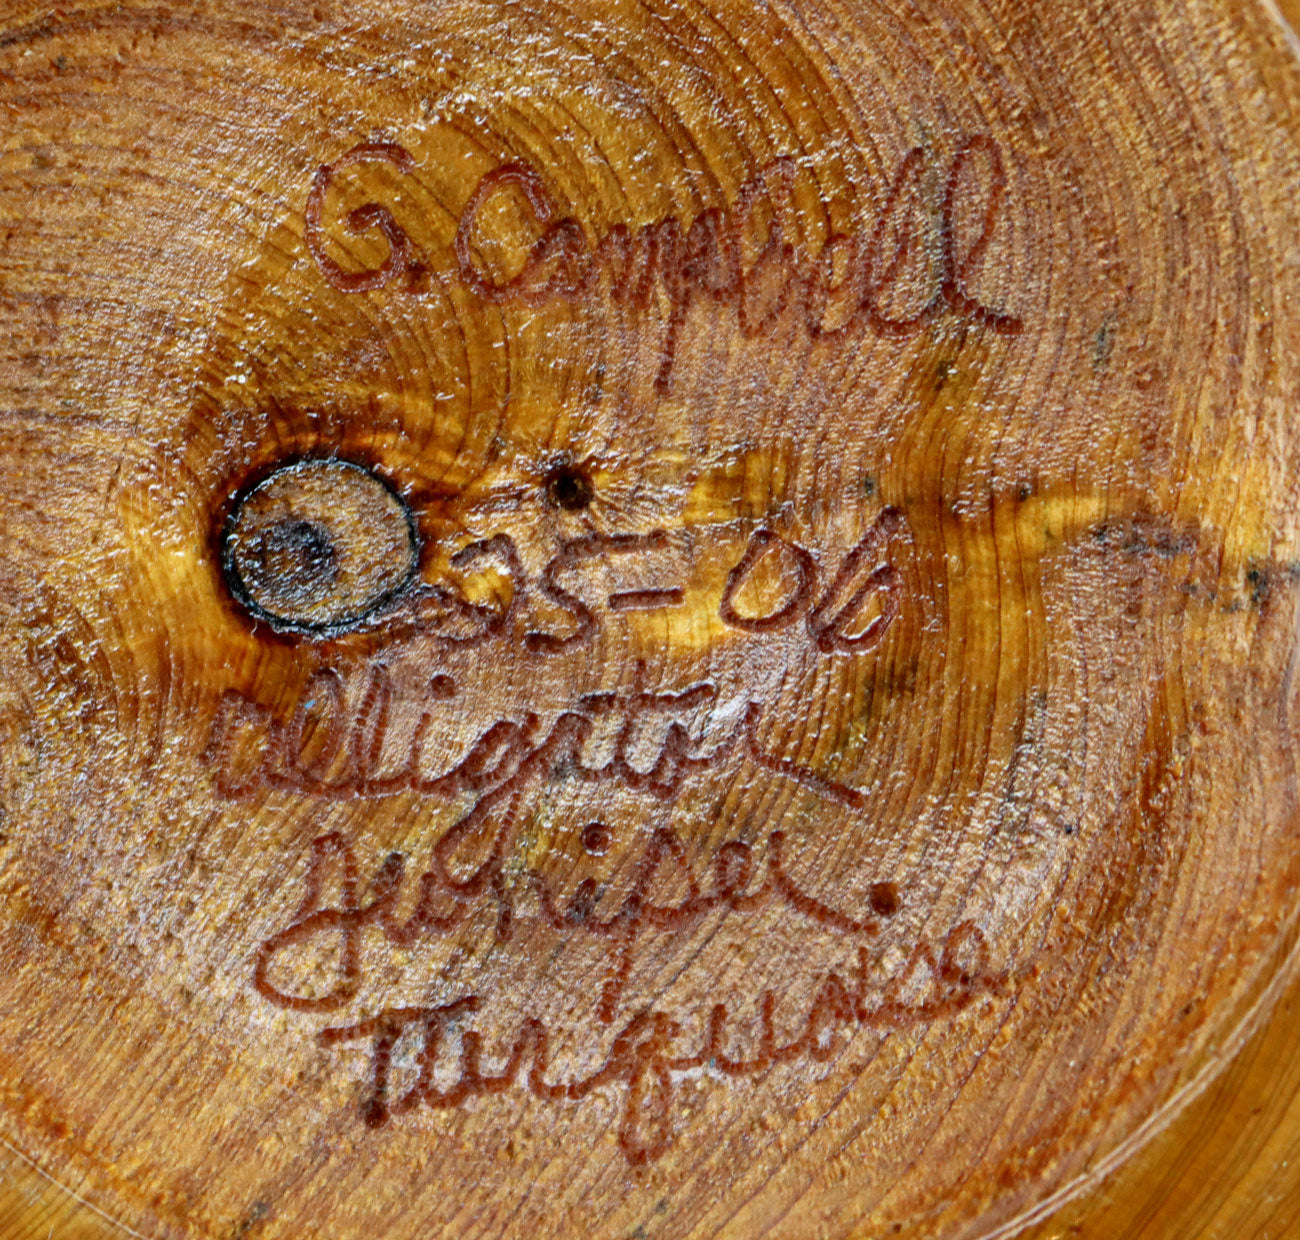 G. Campbell
25-06
Alligator
Juniper.
Turquoise